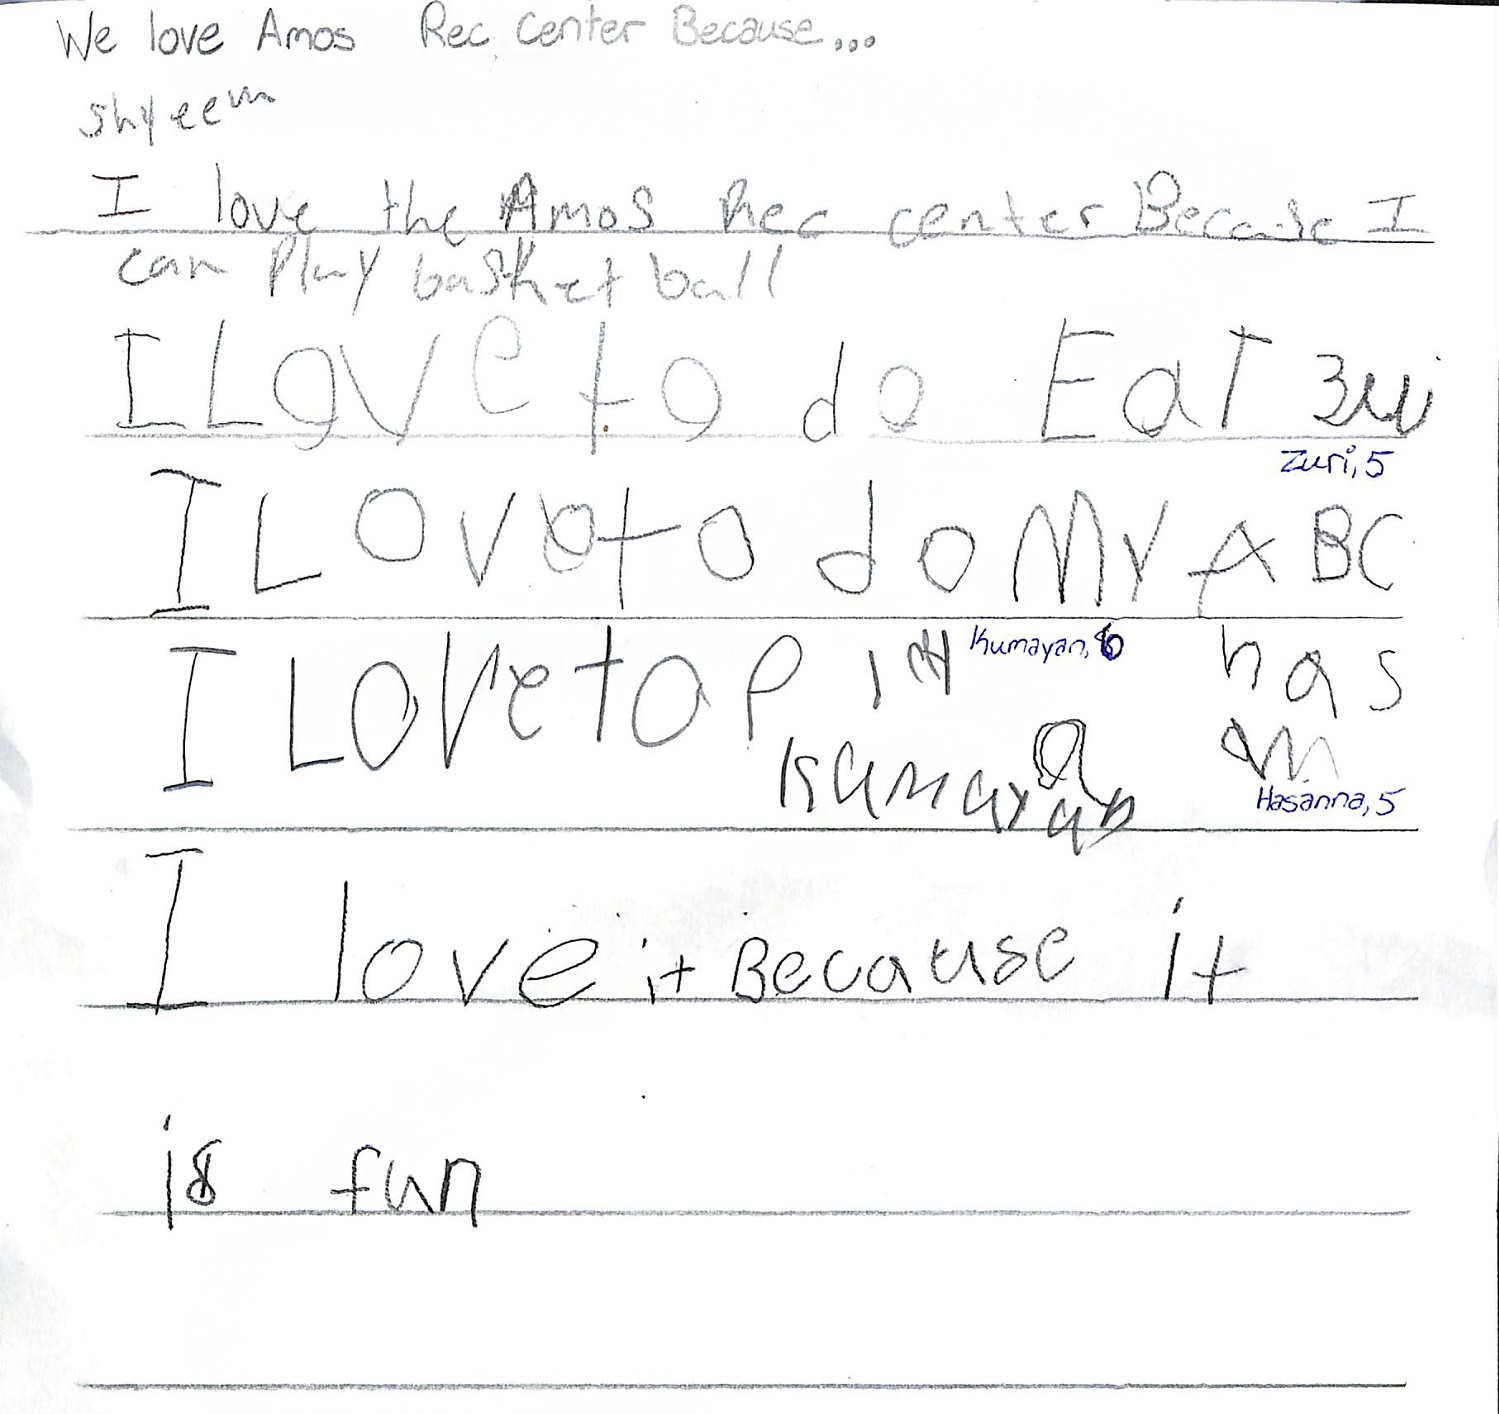 We love Amos Rec Center Because...
Shyeem
I love the Amos Rec center Because I
can Play basket ball
I LovE to do EaT Zuri
Zuri, 5
I Love to do My ABC
Kumayan, 6
I Love to P has
Kumayan
Hasanna, 5
I love it Because it
is fun